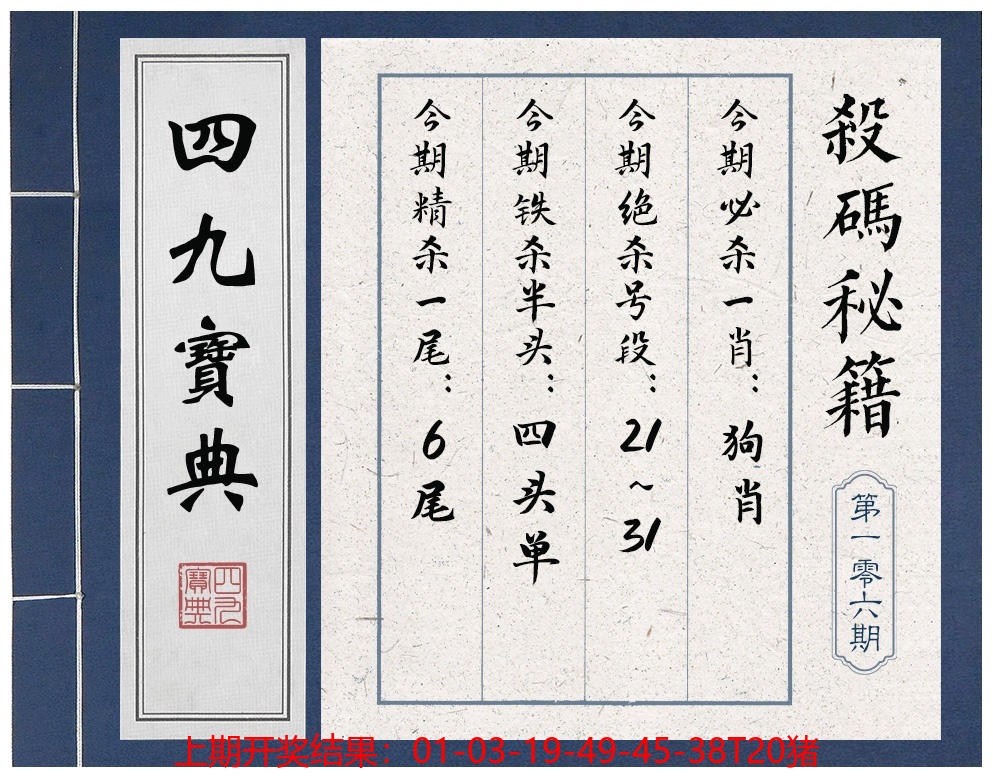 殺碼秘籍
第一零六期
今期必杀一肖：狗肖
今期绝杀号段：21~31
今期铁杀半头：四头单
今期精杀一尾：6尾
四九寶典
四九寶典
上期开奖结果：01-03-19-49-45-38T20猪